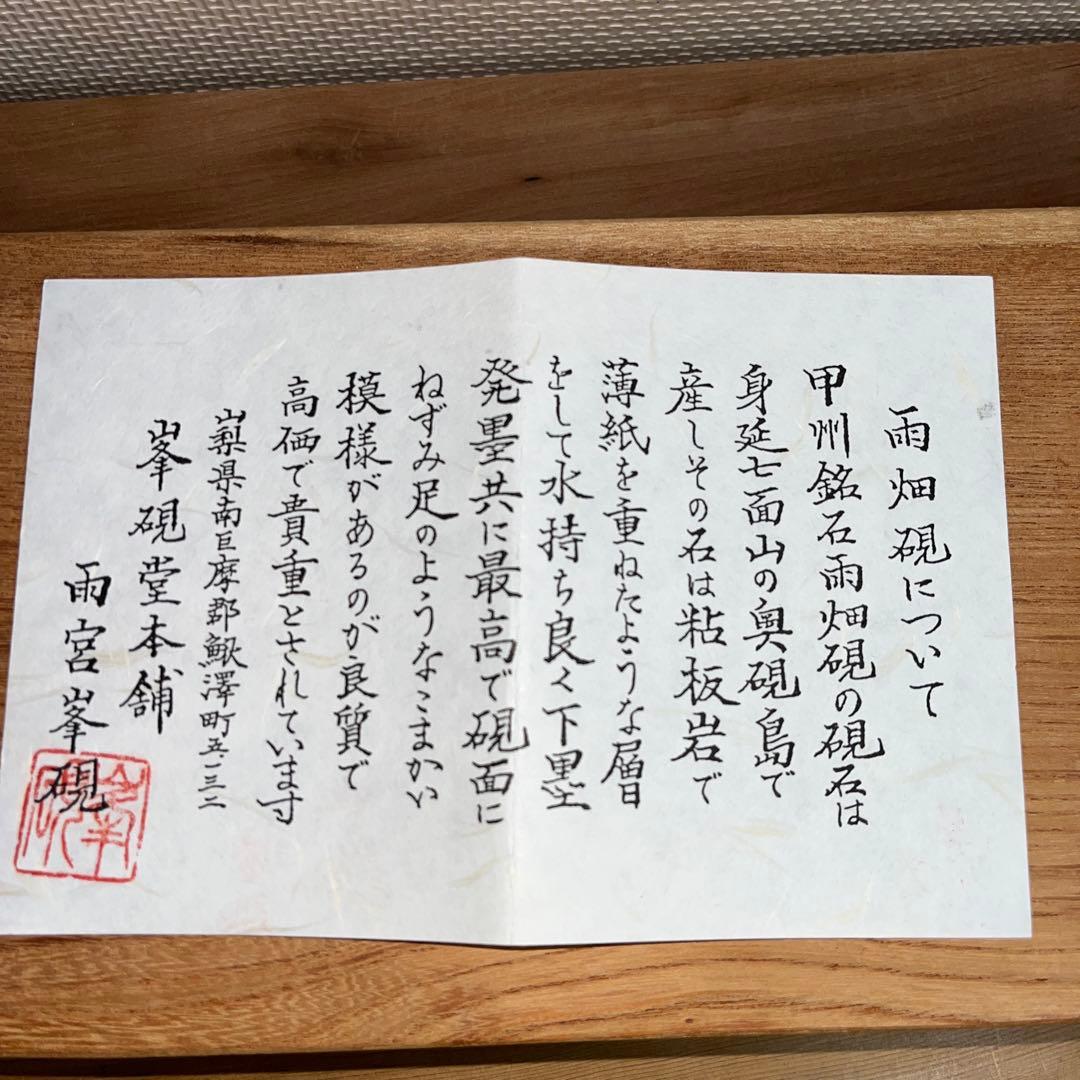 雨畑硯について
甲州銘石雨畑硯の硯石は
身延七面山の奥硯島で
産しその石は粘板岩で
薄紙を重ねたような層
をして水持ち良く下墨
発墨共に最高で硯面に
ねずみ足のようなこまかい
模様があるのが良質で
高価で貴重とされています
山梨県南巨摩郡鰍澤町五二三二
峯硯堂本舗
雨宮峯硯